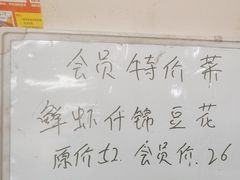 会员特价菜
鲜虾什锦豆花
原价52.会员价.26